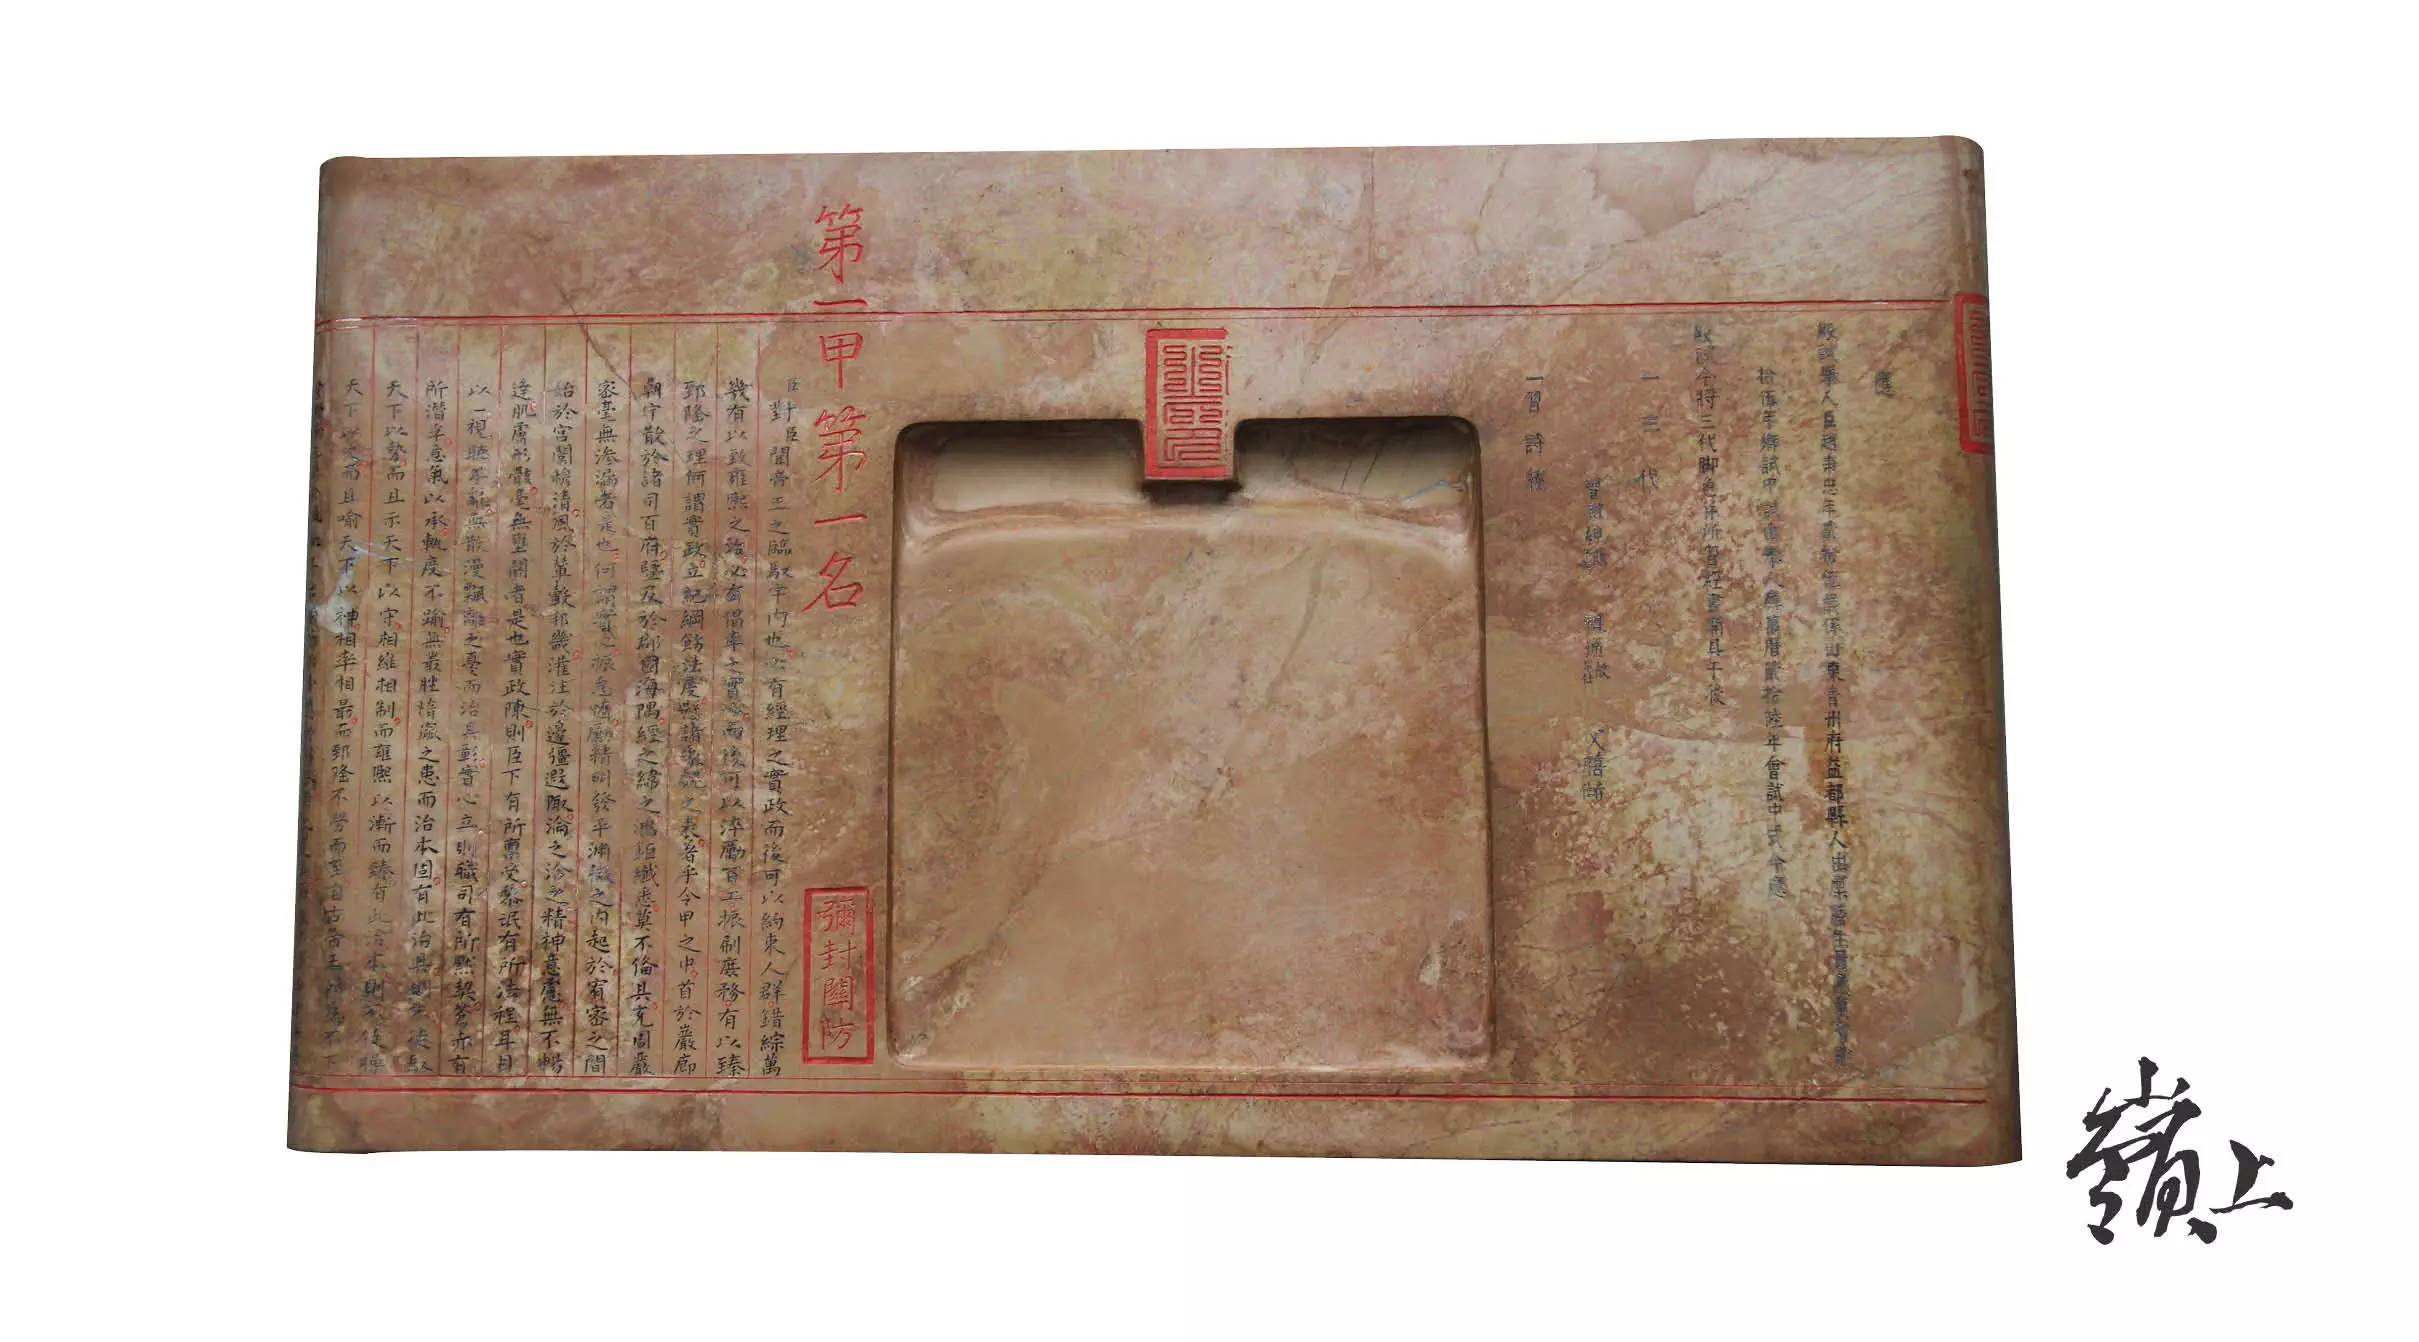 應
殿試舉人臣趙秉忠年貳拾伍歲係山東青州府益都縣人由廩膳生員應
拾伍年鄉試中式由舉人應萬曆貳拾陸年會試中式今應
殿試今將三代脚色并所習經書開具于後
一三代
曾祖 祖 父
一習詩經
第一甲第一名
彌封關防
臣對臣聞帝王之臨馭宇內也必有經理之實政而後可以約束人群錯綜萬
幾有以致雍熙之治必有倡率之實心而後可以淬勵百工振刷庶務有以臻
郅隆之理何謂實政立紀綱飭法度懸諸象魏之表著乎令甲之中首於巖廊
朝宁散於諸司百府暨及於郡國海隅經之緯之鴻鉅纖悉莫不備具充周嚴
密毫無滲漏者是也何謂實心振怠惰勵精明發乎淵微之內起於宥密之間
始於宮闈穆清風於輦轂邦畿灌注於邊疆遐陬淪之洽之精神意慮無不暢
達肌膚形骸毫無壅閼者是也實政陳則臣下有所稟受黎氓有所法程耳目
以一視聽不亂無散漫飄離之憂而治具彰實心立則職司有所默契蒼赤有
所潛孚意氣以承軌度不踰無叢脞惰窳之患而治本固有此治具則不徒馭
天下以勢而且示天下以守相維相制而雍熙以漸而臻有此治本則不徒操
天下以文而且喻天下以神相率相勗而郅隆不勞而至自古帝王所為不下
嶺上